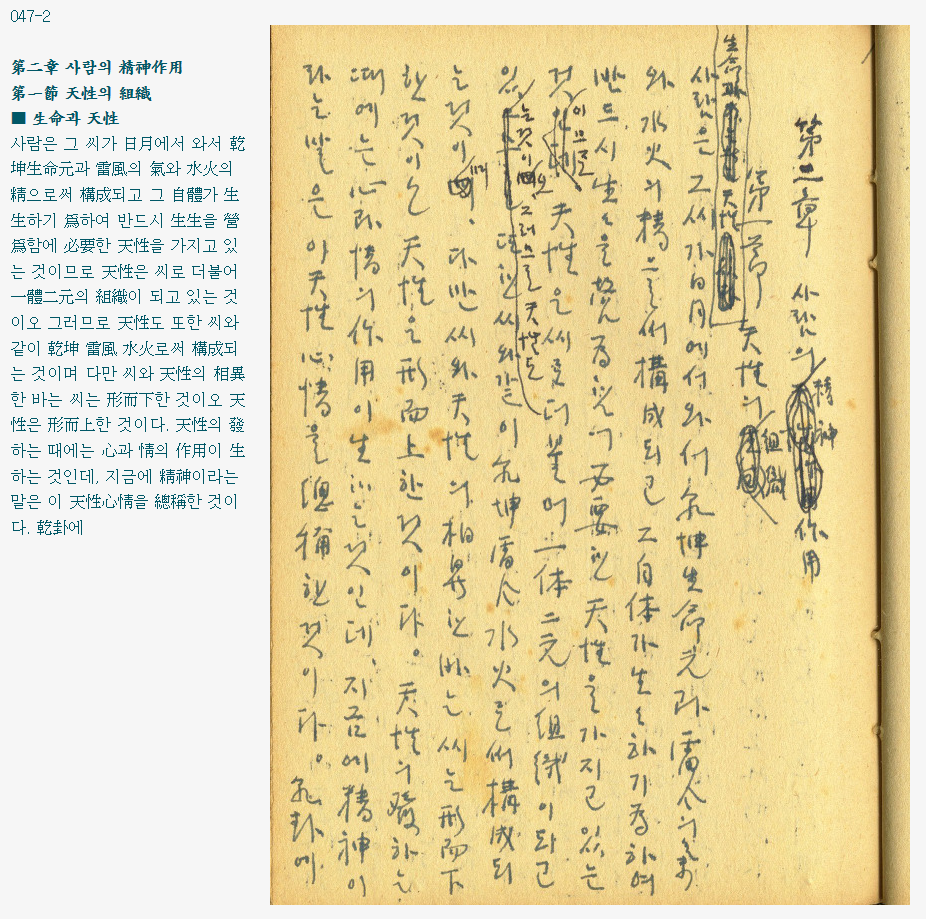 047-2
第二章 사람의 精神作用
第一節 天性의 組織
■ 生命과 天性
사람은 그 씨가 日月에서 와서 乾
坤生命元과 雷風의 氣와 水火의
精으로써 構成되고 그 自體가 生
生하기 爲하여 반드시 生生을 營
爲함에 必要한 天性을 가지고 있
는 것이므로 天性은 씨로 더불어
一體二元의 組織이 되고 있는 것
이오 그러므로 天性도 또한 씨와
같이 乾坤 雷風 水火로써 構成되
는 것이며 다만 씨와 天性의 相異
한 바는 씨는 形而下한 것이오 天
性은 形而上한 것이다. 天性의 發
하는 때에는 心과 情의 作用이 生
하는 것인데, 지금에 精神이라는
말은 이 天性心情을 總稱한 것이
다. 乾卦에
第二章 사람의 精神 作用
第一節 天性의 組織
生命과 天性
사람은 그 씨가 日月에서 와서 乾坤生命元과 雷風의 氣
와 水火의 精으로써 構成되고 그 自体가 生生하기 爲하여
반드시 生生을 營爲함에 必要한 天性을 가지고 있는
것이므로 天性은 씨로 더불어 一体二元의 組織이 되고
있는 것이오 그러므로 天性도 또한 씨와 같이 乾坤 雷風 水火로써 構成되
는 것이며, 다만 씨와 天性의 相異한 바는 씨는 形而下
한 것이오 天性은 形而上한 것이다。天性의 發하는
때에는 心과 情의 作用이 生하는 것인데、지금에 精神이
라는 말은 이 天性心情을 總稱한 것이다。乾卦에